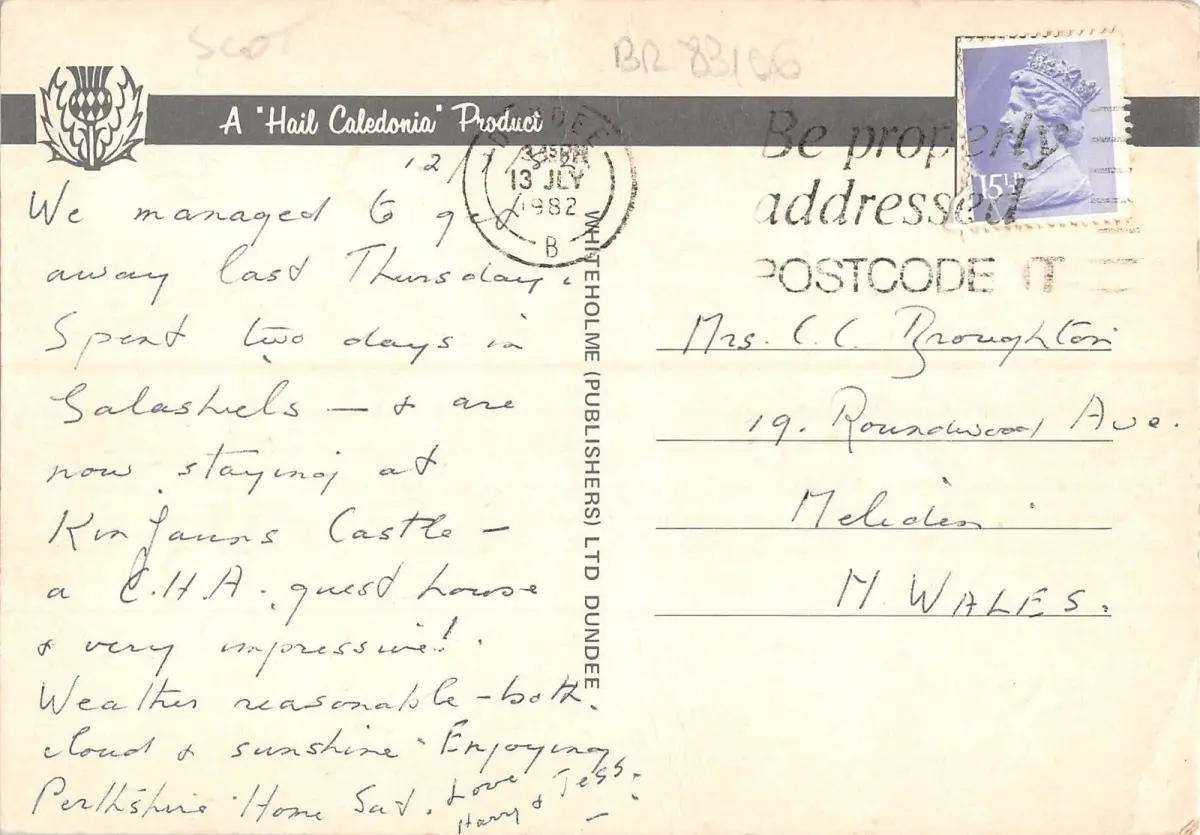 SCOT
BR 83/06
A "Hail Caledonia" Product
DUNDEE
3.45PM
13 JLY
1982
B
Be properly
addressed
POSTCODE IT
15½P
12/7/82
We managed to get
away last Thursday.
Spent two days in
Galashiels – & are
now staying at
Kinfauns Castle –
a C.H.A. guest house
& very impressive!
Weather reasonable – both
cloud & sunshine. Enjoying
Perthshire. Home Sat. Love
Harry & Tess.
WHITEHOLME (PUBLISHERS) LTD DUNDEE
Mrs. C. C. Broughton
19. Roundwood Ave.
Meliden
N. WALES.